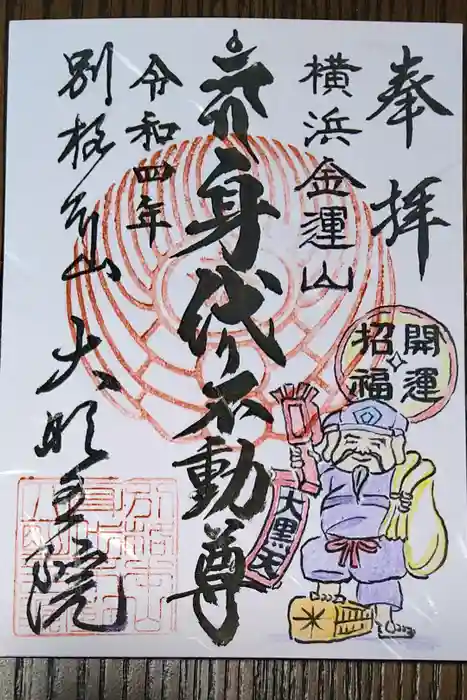 奉拝
横浜金運山
身代り不動尊
令和四年
別格本山
大明王院
開運
招福
大黒天